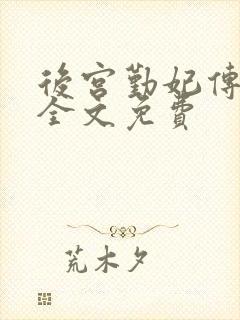 後宮勤妃傳
全文免費
荒木夕